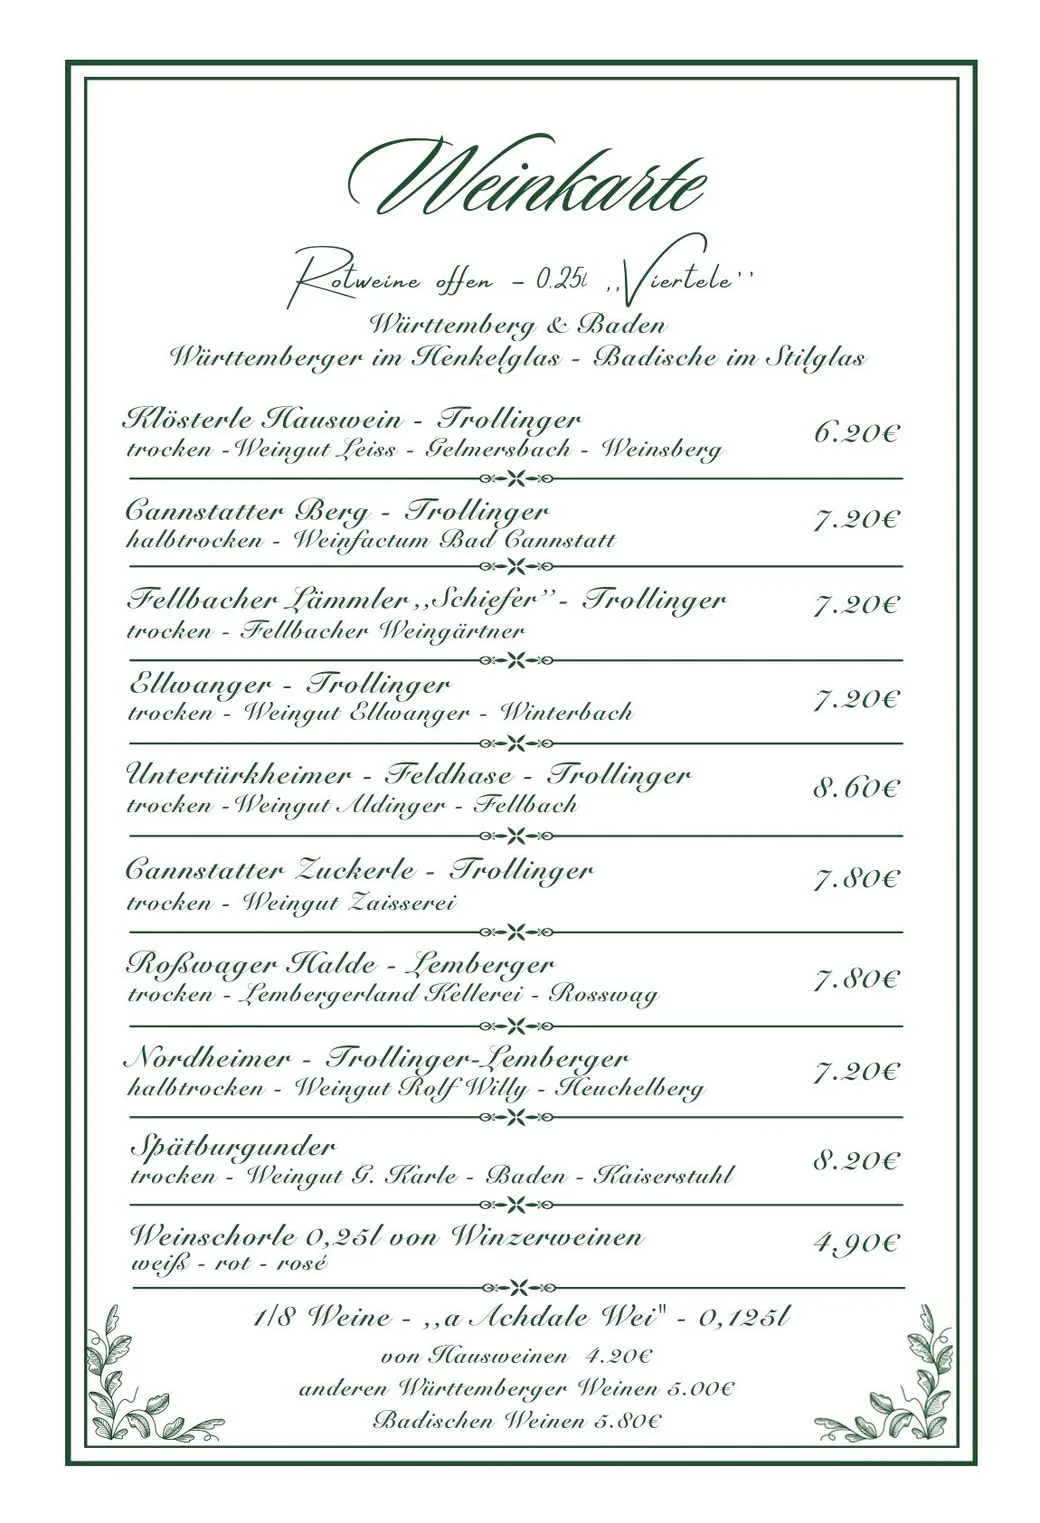 Weinkarte
Rotweine offen - 0,25l ,,Viertele''
Württemberg & Baden
Württemberger im Henkelglas - Badische im Stilglas
Klösterle Hauswein - Trollinger
6.20€
trocken -Weingut Leiss - Gelmersbach - Weinsberg
Cannstatter Berg - Trollinger
7.20€
halbtrocken - Weinfactum Bad Cannstatt
Fellbacher Lämmler ,,Schiefer''- Trollinger
7.20€
trocken - Fellbacher Weingärtner
Ellwanger - Trollinger
7.20€
trocken - Weingut Ellwanger - Winterbach
Untertürkheimer - Feldhase - Trollinger
8.60€
trocken -Weingut Aldinger - Fellbach
Cannstatter Zuckerle - Trollinger
7.80€
trocken - Weingut Zaisserei
Roßwager Halde - Lemberger
7.80€
trocken - Lembergerland Kellerei - Rosswag
Nordheimer - Trollinger-Lemberger
7.20€
halbtrocken - Weingut Rolf Willy - Heuchelberg
Spätburgunder
8.20€
trocken - Weingut G. Karle - Baden - Kaiserstuhl
Weinschorle 0,25l von Winzerweinen
4.90€
weiß - rot - rosé
1/8 Weine - ,,a Achdale Wei" - 0,125l
von Hausweinen 4.20€
anderen Württemberger Weinen 5.00€
Badischen Weinen 5.80€